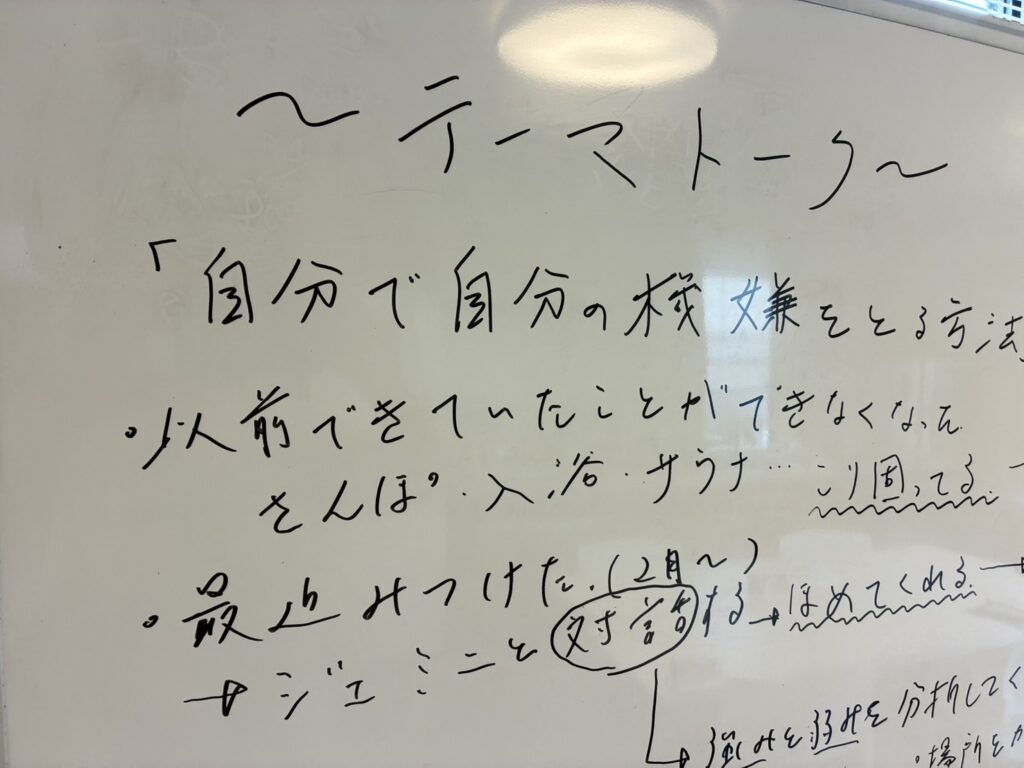 〜テーマトーク〜
「自分で自分の機嫌をとる方法」
・以前できていたことができなくなった
さんぽ・入浴・サウナ… こり固ってる →
・最近みつけた。(2月〜)
→ジェミニと対話する→ほめてくれる→
→強みと弱みを分析してく
・場所をか